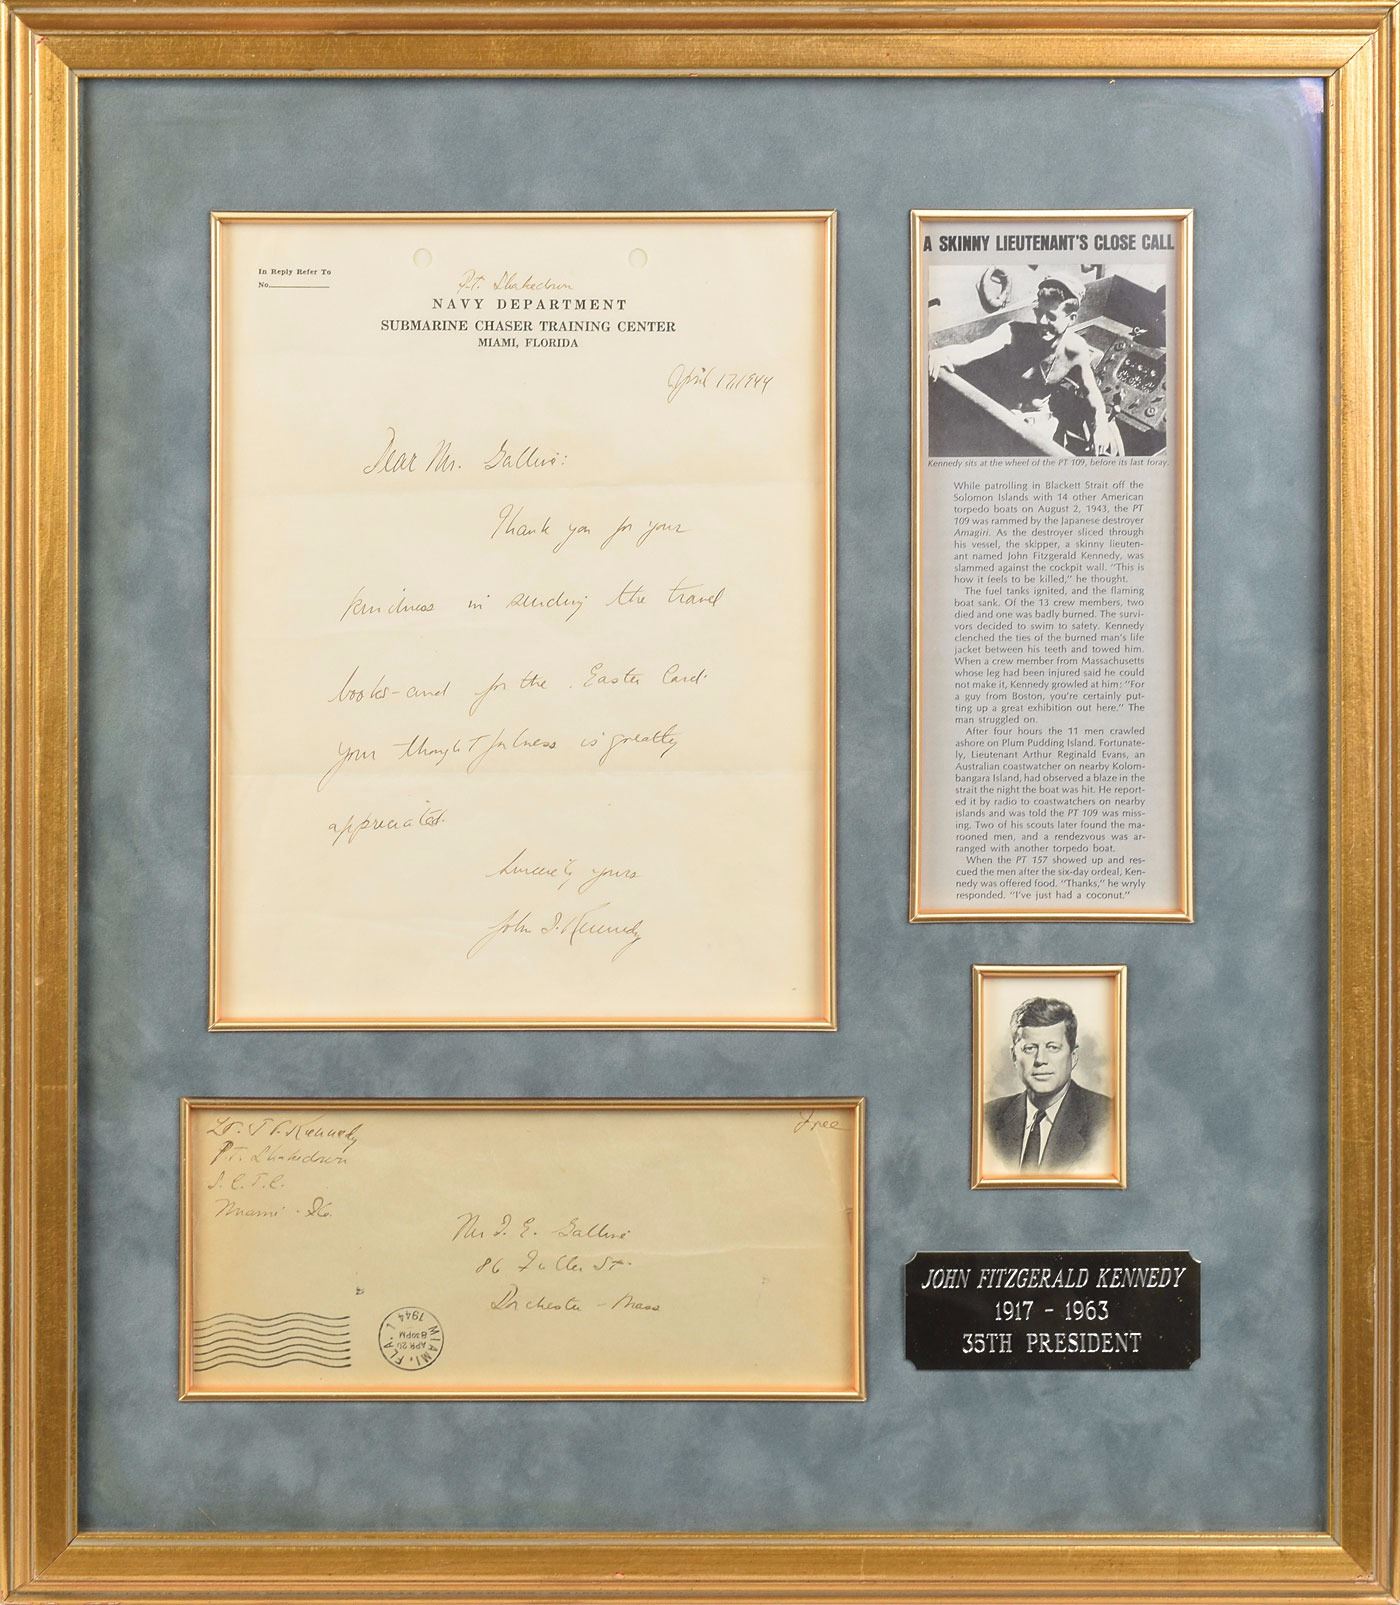 In Reply Refer To
No.
P.T. Shakedown
NAVY DEPARTMENT
SUBMARINE CHASER TRAINING CENTER
MIAMI, FLORIDA
April 17, 1944
Dear Mr.
Thank you for your
kindness in sending the travel
books - and for the Easter Card.
Your thoughtfulness is greatly
appreciated.
Sincerely yours
John F. Kennedy
A SKINNY LIEUTENANT'S CLOSE CALL
Kennedy sits at the wheel of the PT 109, before its last foray.
While patrolling in Blackett Strait off the
Solomon Islands with 14 other American
torpedo boats on August 2, 1943, the PT
109 was rammed by the Japanese destroyer
Amagiri. As the destroyer sliced through
his vessel, the skipper, a skinny lieuten-
ant named John Fitzgerald Kennedy, was
slammed against the cockpit wall. "This is
how it feels to be killed," he thought.
The fuel tanks ignited, and the flaming
boat sank. Of the 13 crew members, two
died and one was badly burned. The survi-
vors decided to swim to safety. Kennedy
clenched the ties of the burned man's life
jacket between his teeth and towed him.
When a crew member from Massachusetts
whose leg had been injured said he could
not make it, Kennedy growled at him: "For
a guy from Boston, you're certainly put-
ting up a great exhibition out here." The
man struggled on.
After four hours the 11 men crawled
ashore on Plum Pudding Island. Fortunate-
ly, Lieutenant Arthur Reginald Evans, an
Australian coastwatcher on nearby Kolom-
bangara Island, had observed a blaze in the
strait the night the boat was hit. He report-
ed it by radio to coastwatchers on nearby
islands and was told the PT 109 was miss-
ing. Two of his scouts later found the ma-
rooned men, and a rendezvous was ar-
ranged with another torpedo boat.
When the PT 157 showed up and res-
cued the men after the six-day ordeal, Ken-
nedy was offered food. "Thanks," he wryly
responded. "I've just had a coconut."
Lt. J F. Kennedy
P.T. Shakedown
S.C.T.C.
Miami - Fla.
Free
86 Fuller St.
Dorchester - Mass
MIAMI, FLA. 1
APR 20
8 30 PM
1944
JOHN FITZGERALD KENNEDY
1917 - 1963
35TH PRESIDENT